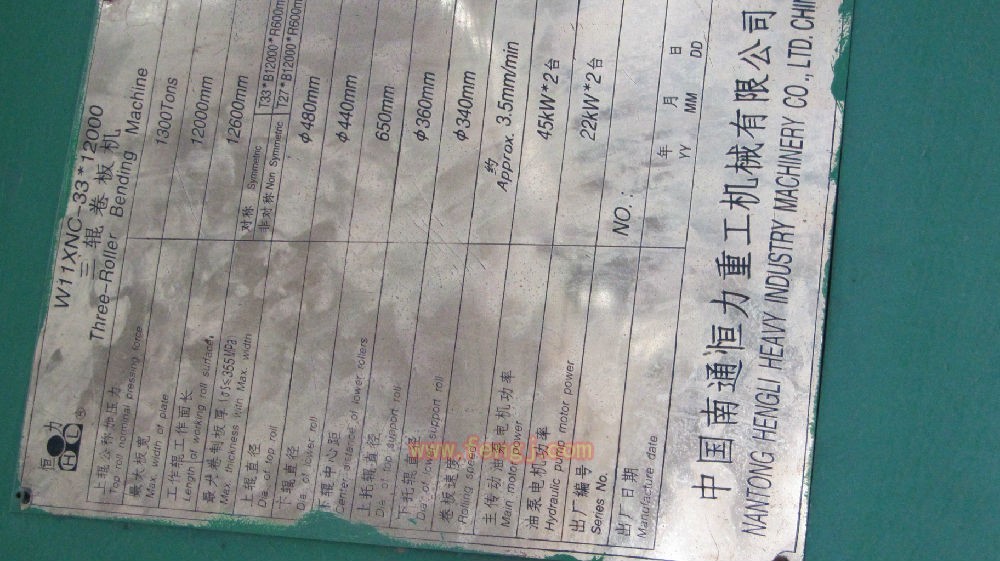 恒力
HL®
W11XNC-33*12000
三辊卷板机
Three-Roller Bending Machine
上辊公称加压力
Top roll nominal pressing force
1300Tons
最大板宽
Max. width of plate
12000mm
工作辊工作面长
Length of working roll surface
12600mm
最大卷制板厚(δs≤355MPa)
Max. thickness with Max. width
对称 Symmetric T33*B12000*R600m
非对称 Non Symmetric T27*B12000*R600m
上辊直径
Dia. of top roll
φ480mm
下辊直径
Dia. of lower roll
φ440mm
下辊中心距
Center distance of lower rollers
650mm
上托辊直径
Dia of top support roll
φ360mm
下托辊直径
Dia of lower support roll
φ340mm
卷板速度
Rolling speed
约
Approx. 3.5mm/min
主传动油泵电机功率
Main motor power
45kW*2台
油泵电机功率
Hydraulic pump motor power
22kW*2台
出厂编号
Series No.
NO.:
出厂日期
Manufacture date
年 月 日
YY MM DD
中国南通恒力重工机械有限公司
NANTONG HENGLI HEAVY INDUSTRY MACHINERY CO., LTD. CHIN